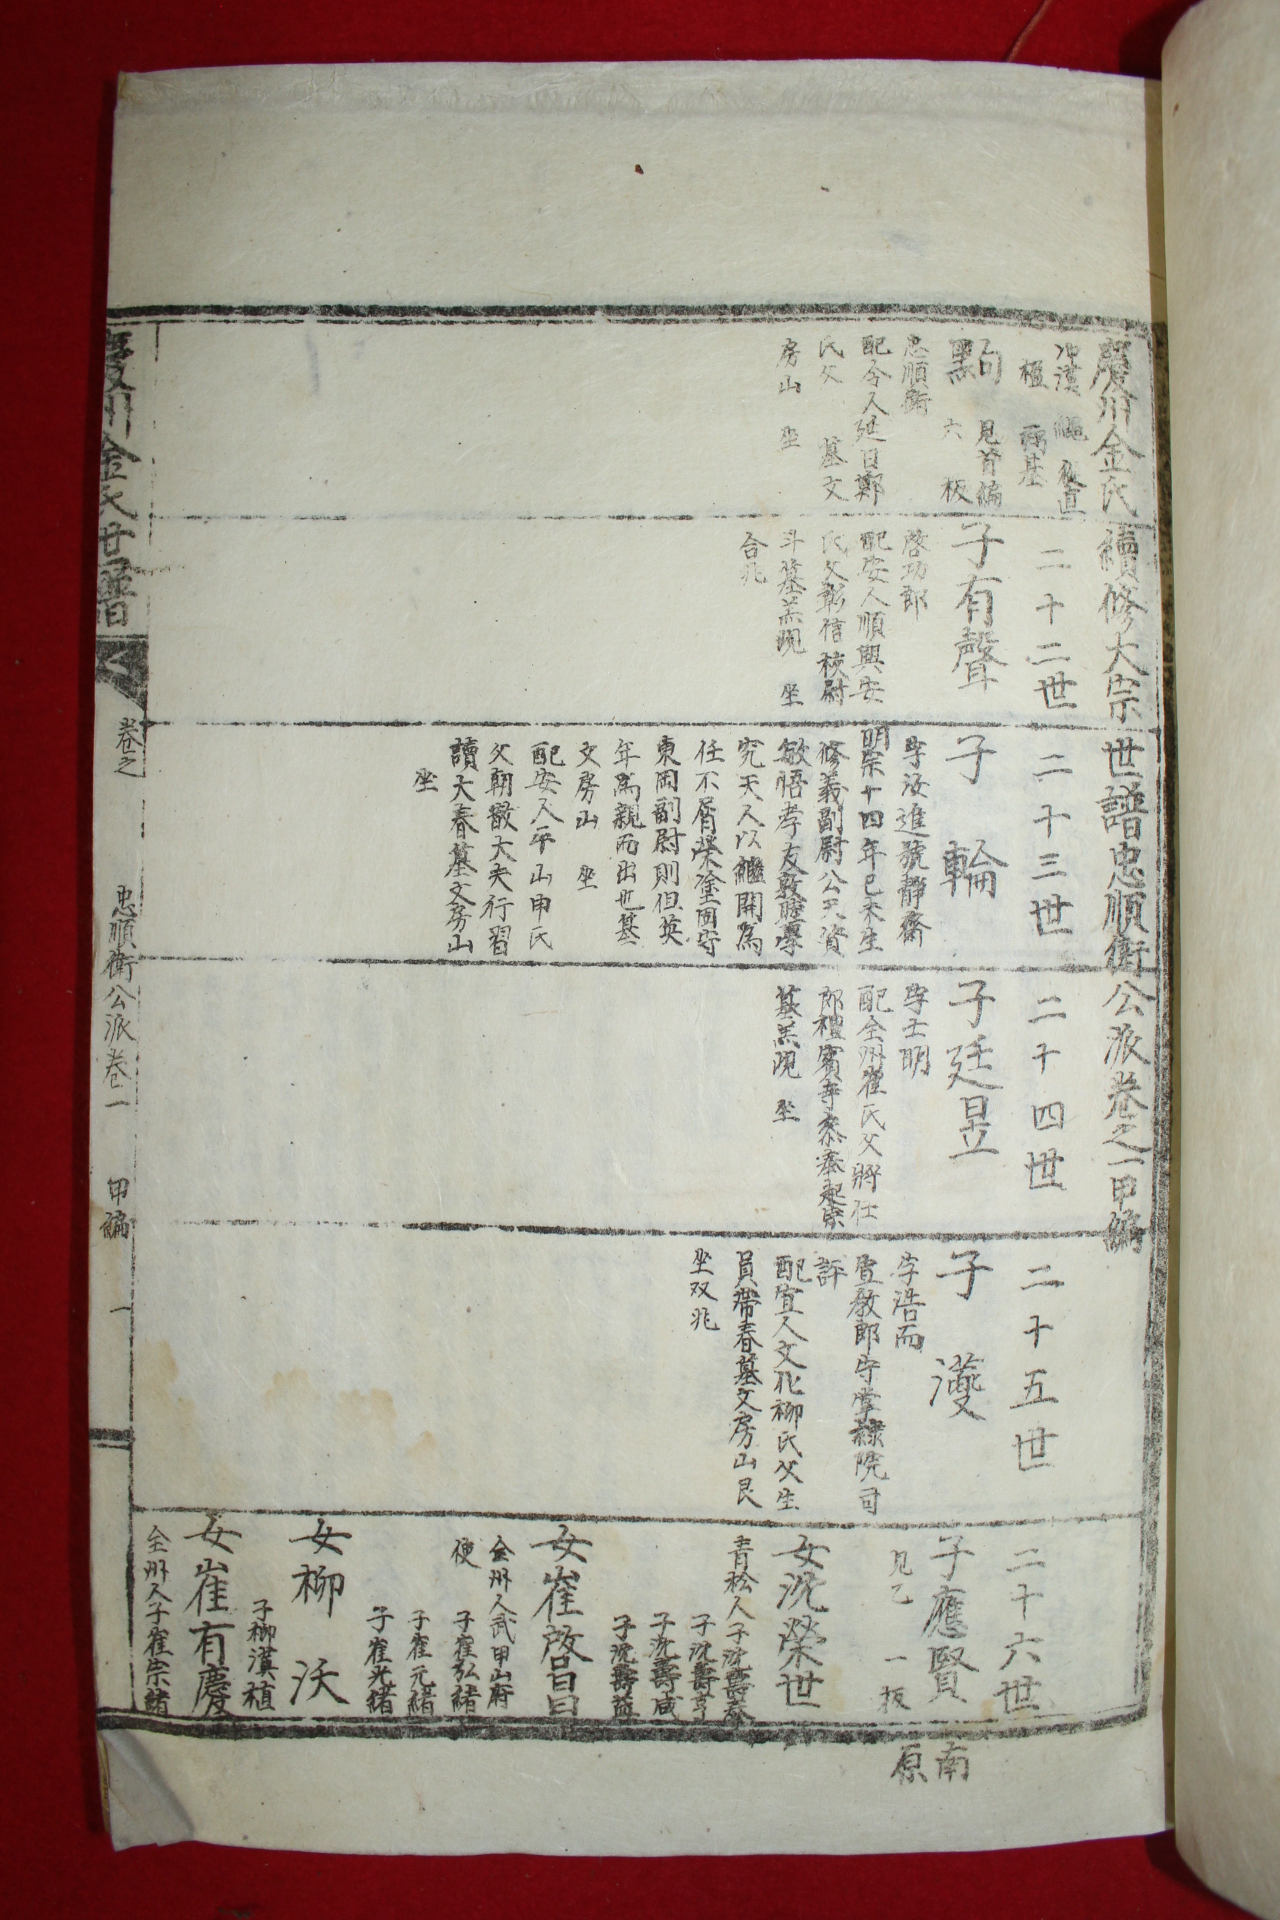 慶州金氏續修大宗世譜忠順衛公派卷之一甲編
冲漢
櫃
見首編
六板
忠順衛
配令人延日鄭
氏父 墓文
房山 坐
二十二世
子有聲
啓功郎
配安人順興安
氏父彰信校尉
斗墓羔峴 坐
合兆
二十三世
子輪
字汝進號靜齋
明宗十四年己未生
修義副尉公天資
敏悟孝友敦睦學
究天人以繼開爲
任不屑榮塗固守
東岡副尉則但英
年爲親而出也墓
文房山 坐
配安人平山申氏
父朝散大夫行習
讀大春墓文房山
坐
二十四世
子廷昱
字士明
配全州崔氏父將仕
郎禮賓寺叅奉起
墓羔峴 坐
二十五世
子
字浩而
宣敎郎守掌隷院司
評
配宜人文化柳氏父生
員帶春墓文房山艮
坐双兆
二十六世
子應賢
見乙 一板
南
原
女沈榮世
青松人子沈壽
子沈壽亨
子沈壽咸
子沈壽益
女崔啓昌
全州人武甲山府
使
子崔弘緖
子崔元緖
子崔光緖
女柳沃
子柳漢植
女崔有慶
全州人子崔宗緖
慶州金氏世譜
卷之
忠順衛公派卷一
甲編
一